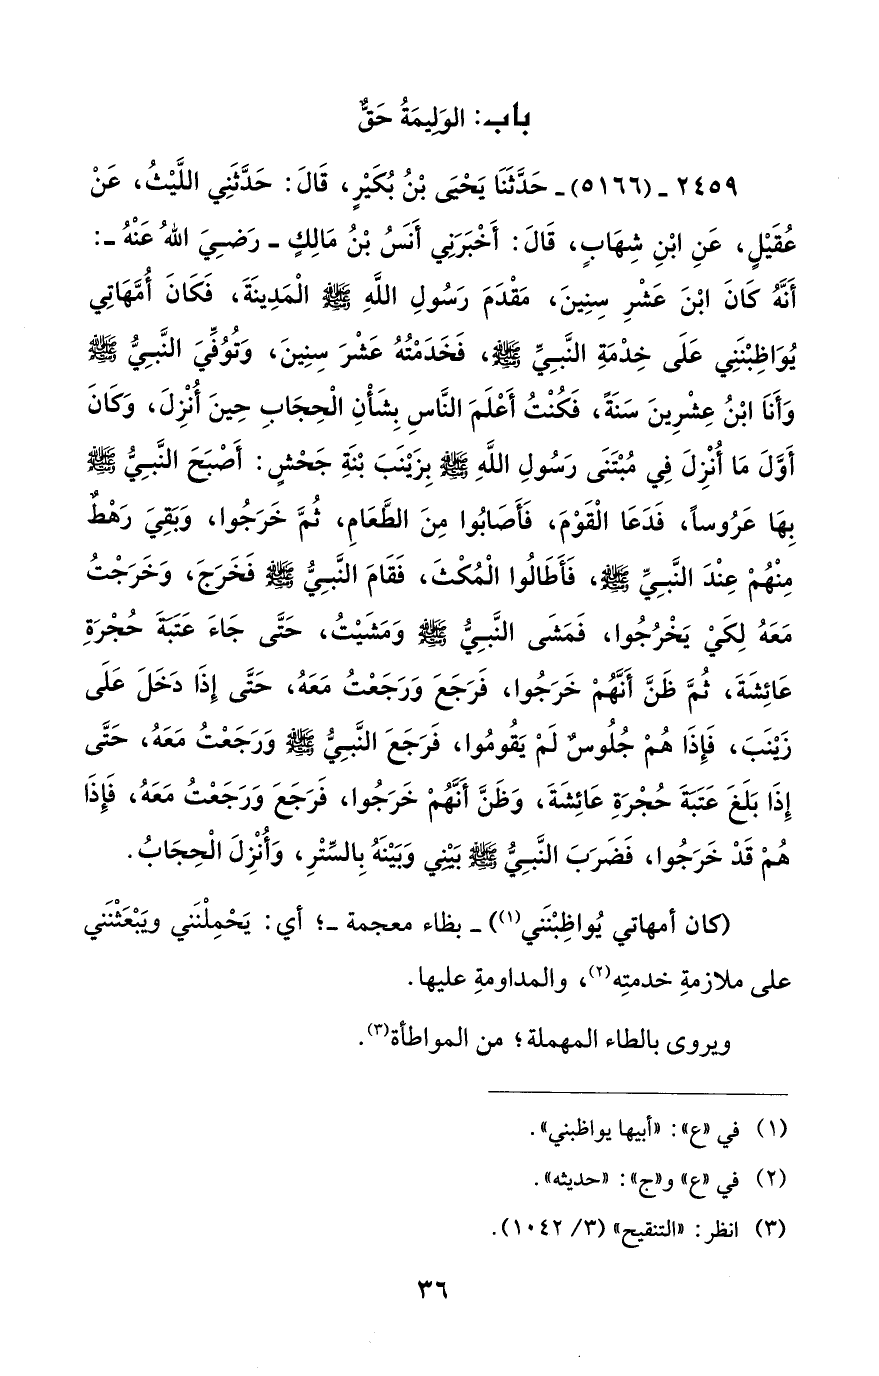 باب: الوَلِيمَةُ حَقٌّ
٢٤٥٩ ـ (٥١٦٦) ـ حَدَّثَنَا يَحْيَى بْنُ بُكَيْرٍ، قَالَ: حَدَّثَنِي اللَّيْثُ، عَنْ
عُقَيْلٍ، عَنِ ابْنِ شِهَابٍ، قَالَ: أَخْبَرَنِي أَنَسُ بْنُ مَالِكٍ ـ رَضِيَ اللهُ عَنْهُ ـ:
أَنَّهُ كَانَ ابْنَ عَشْرِ سِنِينَ، مَقْدَمَ رَسُولِ اللَّهِ ﷺ الْمَدِينَةَ، فَكَانَ أُمَّهَاتِي
يُوَاظِبْنَنِي عَلَى خِدْمَةِ النَّبِيِّ ﷺ، فَخَدَمْتُهُ عَشْرَ سِنِينَ، وَتُوُفِّيَ النَّبِيُّ ﷺ
وَأَنَا ابْنُ عِشْرِينَ سَنَةً، فَكُنْتُ أَعْلَمَ النَّاسِ بِشَأْنِ الْحِجَابِ حِينَ أُنْزِلَ، وَكَانَ
أَوَّلَ مَا أُنْزِلَ فِي مُبْتَنَى رَسُولِ اللَّهِ ﷺ بِزَيْنَبَ بْنَةِ جَحْشٍ: أَصْبَحَ النَّبِيُّ ﷺ
بِهَا عَرُوساً، فَدَعَا الْقَوْمَ، فَأَصَابُوا مِنَ الطَّعَامِ، ثُمَّ خَرَجُوا، وَبَقِيَ رَهْطٌ
مِنْهُمْ عِنْدَ النَّبِيِّ ﷺ، فَأَطَالُوا الْمُكْثَ، فَقَامَ النَّبِيُّ ﷺ فَخَرَجَ، وَخَرَجْتُ
مَعَهُ لِكَيْ يَخْرُجُوا، فَمَشَى النَّبِيُّ ﷺ وَمَشَيْتُ، حَتَّى جَاءَ عَتَبَةَ حُجْرَةِ
عَائِشَةَ، ثُمَّ ظَنَّ أَنَّهُمْ خَرَجُوا، فَرَجَعَ وَرَجَعْتُ مَعَهُ، حَتَّى إِذَا دَخَلَ عَلَى
زَيْنَبَ، فَإِذَا هُمْ جُلُوسٌ لَمْ يَقُومُوا، فَرَجَعَ النَّبِيُّ ﷺ وَرَجَعْتُ مَعَهُ، حَتَّى
إِذَا بَلَغَ عَتَبَةَ حُجْرَةِ عَائِشَةَ، وَظَنَّ أَنَّهُمْ خَرَجُوا، فَرَجَعَ وَرَجَعْتُ مَعَهُ، فَإِذَا
هُمْ قَدْ خَرَجُوا، فَضَرَبَ النَّبِيُّ ﷺ بَيْنِي وَبَيْنَهُ بِالسِّتْرِ، وَأُنْزِلَ الْحِجَابُ.
(كان أمهاتي يُواظِبْنَني(١)) ـ بظاء معجمة ـ؛ أي: يَحْمِلْنَني ويَبْعَثْنَني
على ملازمةِ خدمتِه(٢)، والمداومةِ عليها.
ويروى بالطاء المهملة؛ من المواطأة(٣).
(١) في «ع»: «أبيها يواظبني».
(٢) في «ع» و«ج»: «حديثه».
(٣) انظر: «التنقيح» (٣/ ١٠٤٢).
٣٦